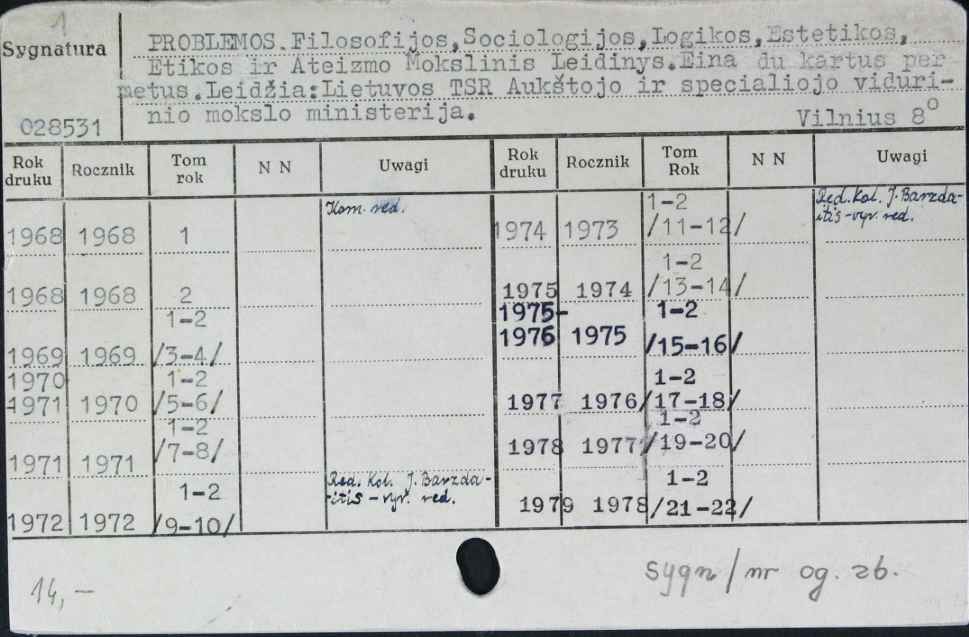 1
Sygnatura
PROBLEMOS.Filosofijos,Sociologijos,Logikos,Estetikos,
Etikos ir Ateizmo Mokslinis Leidinys.Eina du kartus per
metus.Leidžia:Lietuvos TSR Aukštojo ir specialiojo viduri-
nio mokslo ministerija.
028531
Vilnius 8°
Rok druku Rocznik Tom rok N N Uwagi Rok druku Rocznik Tom Rok N N Uwagi
Kom. red.
1968 1968 1
1968 1968 2
1-2
1969 1969 /3-4/
1970 1-2
-1971 1970 /5-6/
1-2
1971 1971 /7-8/
Red. Kol. J. Barzda-
itis - vyr. red.
1-2
1972 1972 /9-10/
1-2
Red. Kol. J. Barzda-
itis - vyr. red.
1974 1973 /11-12/
1-2
1975 1974 /13-14/
1975- 1-2
1976 1975 /15-16/
1-2
1977 1976 /17-18/
1-2
1978 1977 /19-20/
1-2
1979 1978 /21-22/
14,-
sygn/nr og. zb.